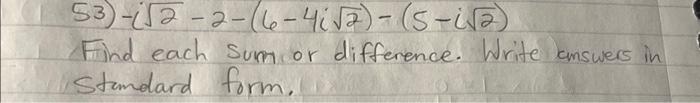 53) -i√2 - 2 - (6 - 4i√2) - (5 - i√2)
Find each sum or difference. Write answers in
Standard form.